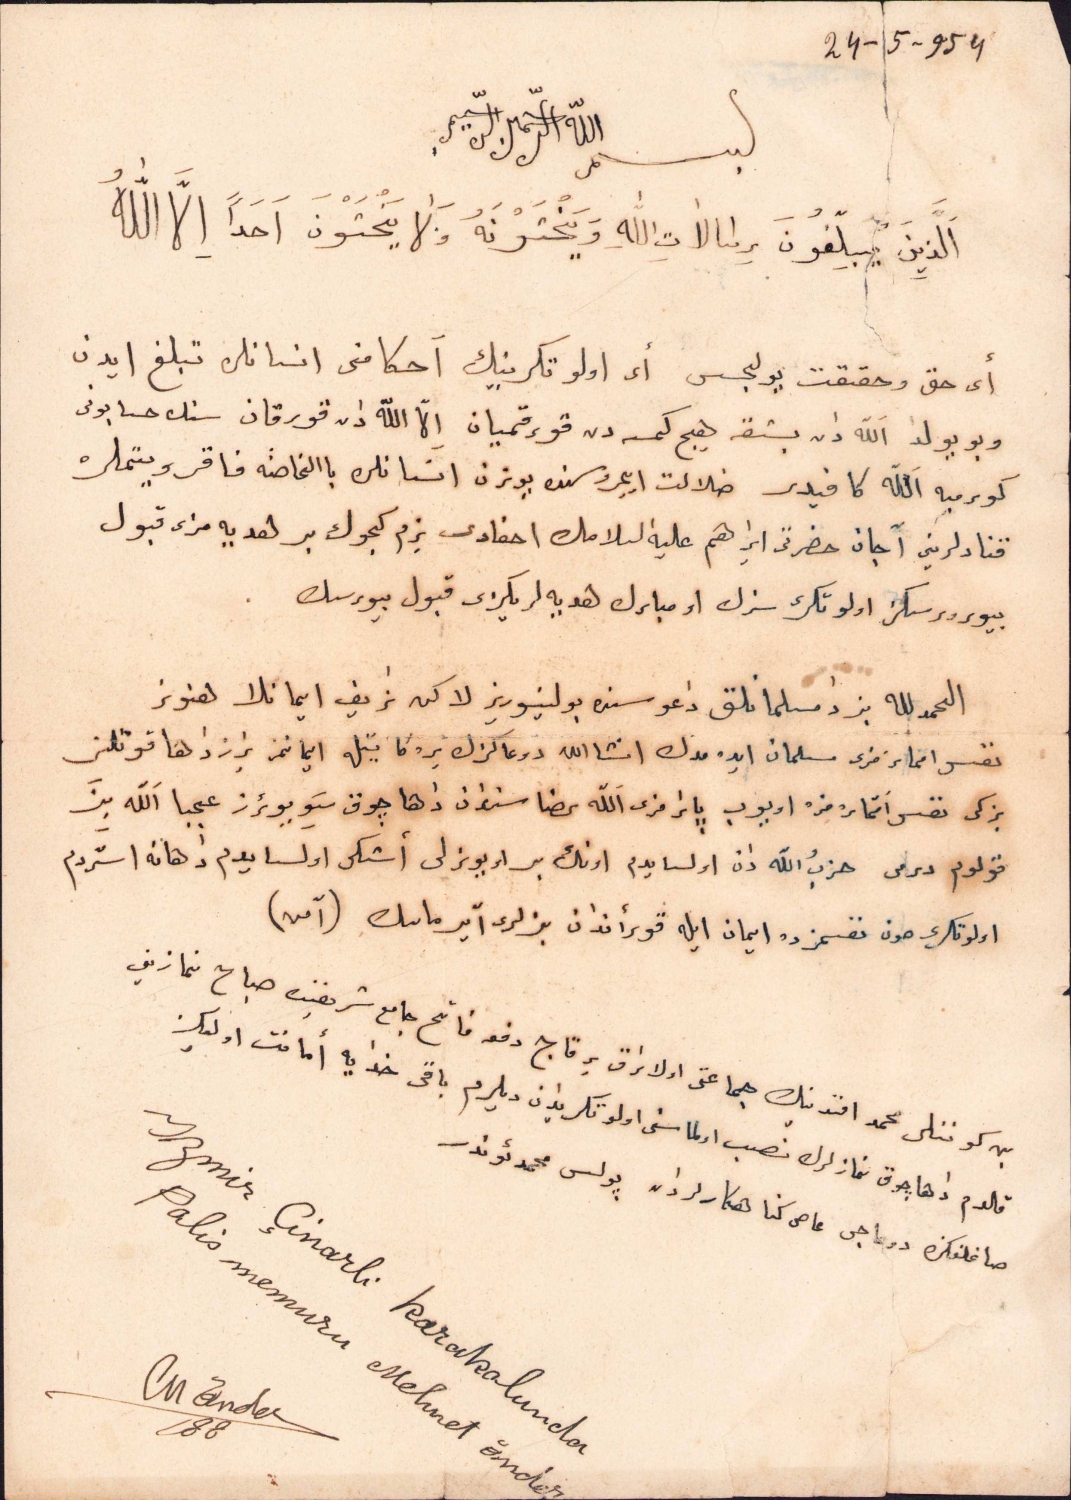 24-5-954
بسم الله الرحمن الرحيم
اَلَّذِينَ يُبَلِّغُونَ رِسَالَاتِ اللّٰهِ وَيَخْشَوْنَهُ وَلَا يَخْشَوْنَ اَحَدًا اِلَّا اللّٰهَ
أى حق وحقيقت يولجسى أى اولو تكرينيڭ آحكامنى انسانلره تبلغ ايدن
وبو يولدا اَللّه دان بشقه هيچ كمسه دن قورقميان اِلّا اللّه دان قورقان سنك حسابونى
كورميه اَللّه كافيدر ضلالت ايچروسنده يوزن انسانلره باالخاصه فاقر ويتيملره
قنادلرينى آچان حضرتى ابراهم عليه السلامك احفادى بزم كچوك بر هديه مزى قبول
بيورورسكز اولو تكرى سزك او مبارك هديه لريكزى قبول بيورسك
الحمد لله بزدا مسلمانلق داعوسنده بولنيوريز لاكن ضايف ايمانلا هنوز
نفس اماره مزى مسلمان ايده مدك انشاالله دوعاكزك بره كا ييله ايمانمز براز داها قوتلنر
بز كى نفس اَمّاره مزه اويوب پاره مزى اَللّه رضاسندان داها چوق سَويوررز عجبا اَللّه بِزَ
قولوم درمى حزبُ اللّه دان اولسايدم اونك بر اويوزلى أشكى اولسايدم داهانه استردم
اولو تكرى صون نفسمزده ايمان ايله قورأندان بزلرى آيرماسك (آمين)
بن كوننلى محمد افندينيك جماعتى اولاراق بر قاچ دفعه فاتح جامع شريفنده صباح نمازينى
قالدم داها چوق نمازلرك نصيب اولماسنى اولو تكريدان ديلرم باقى خدايه أمانت اولكز
صاغلغكزه دوعاجى عاصى كناهكارلردان پولس محمد ئوندر
İzmir Çinarli karakolunda
Polis memuru Mehmet Önder
M Önder
188